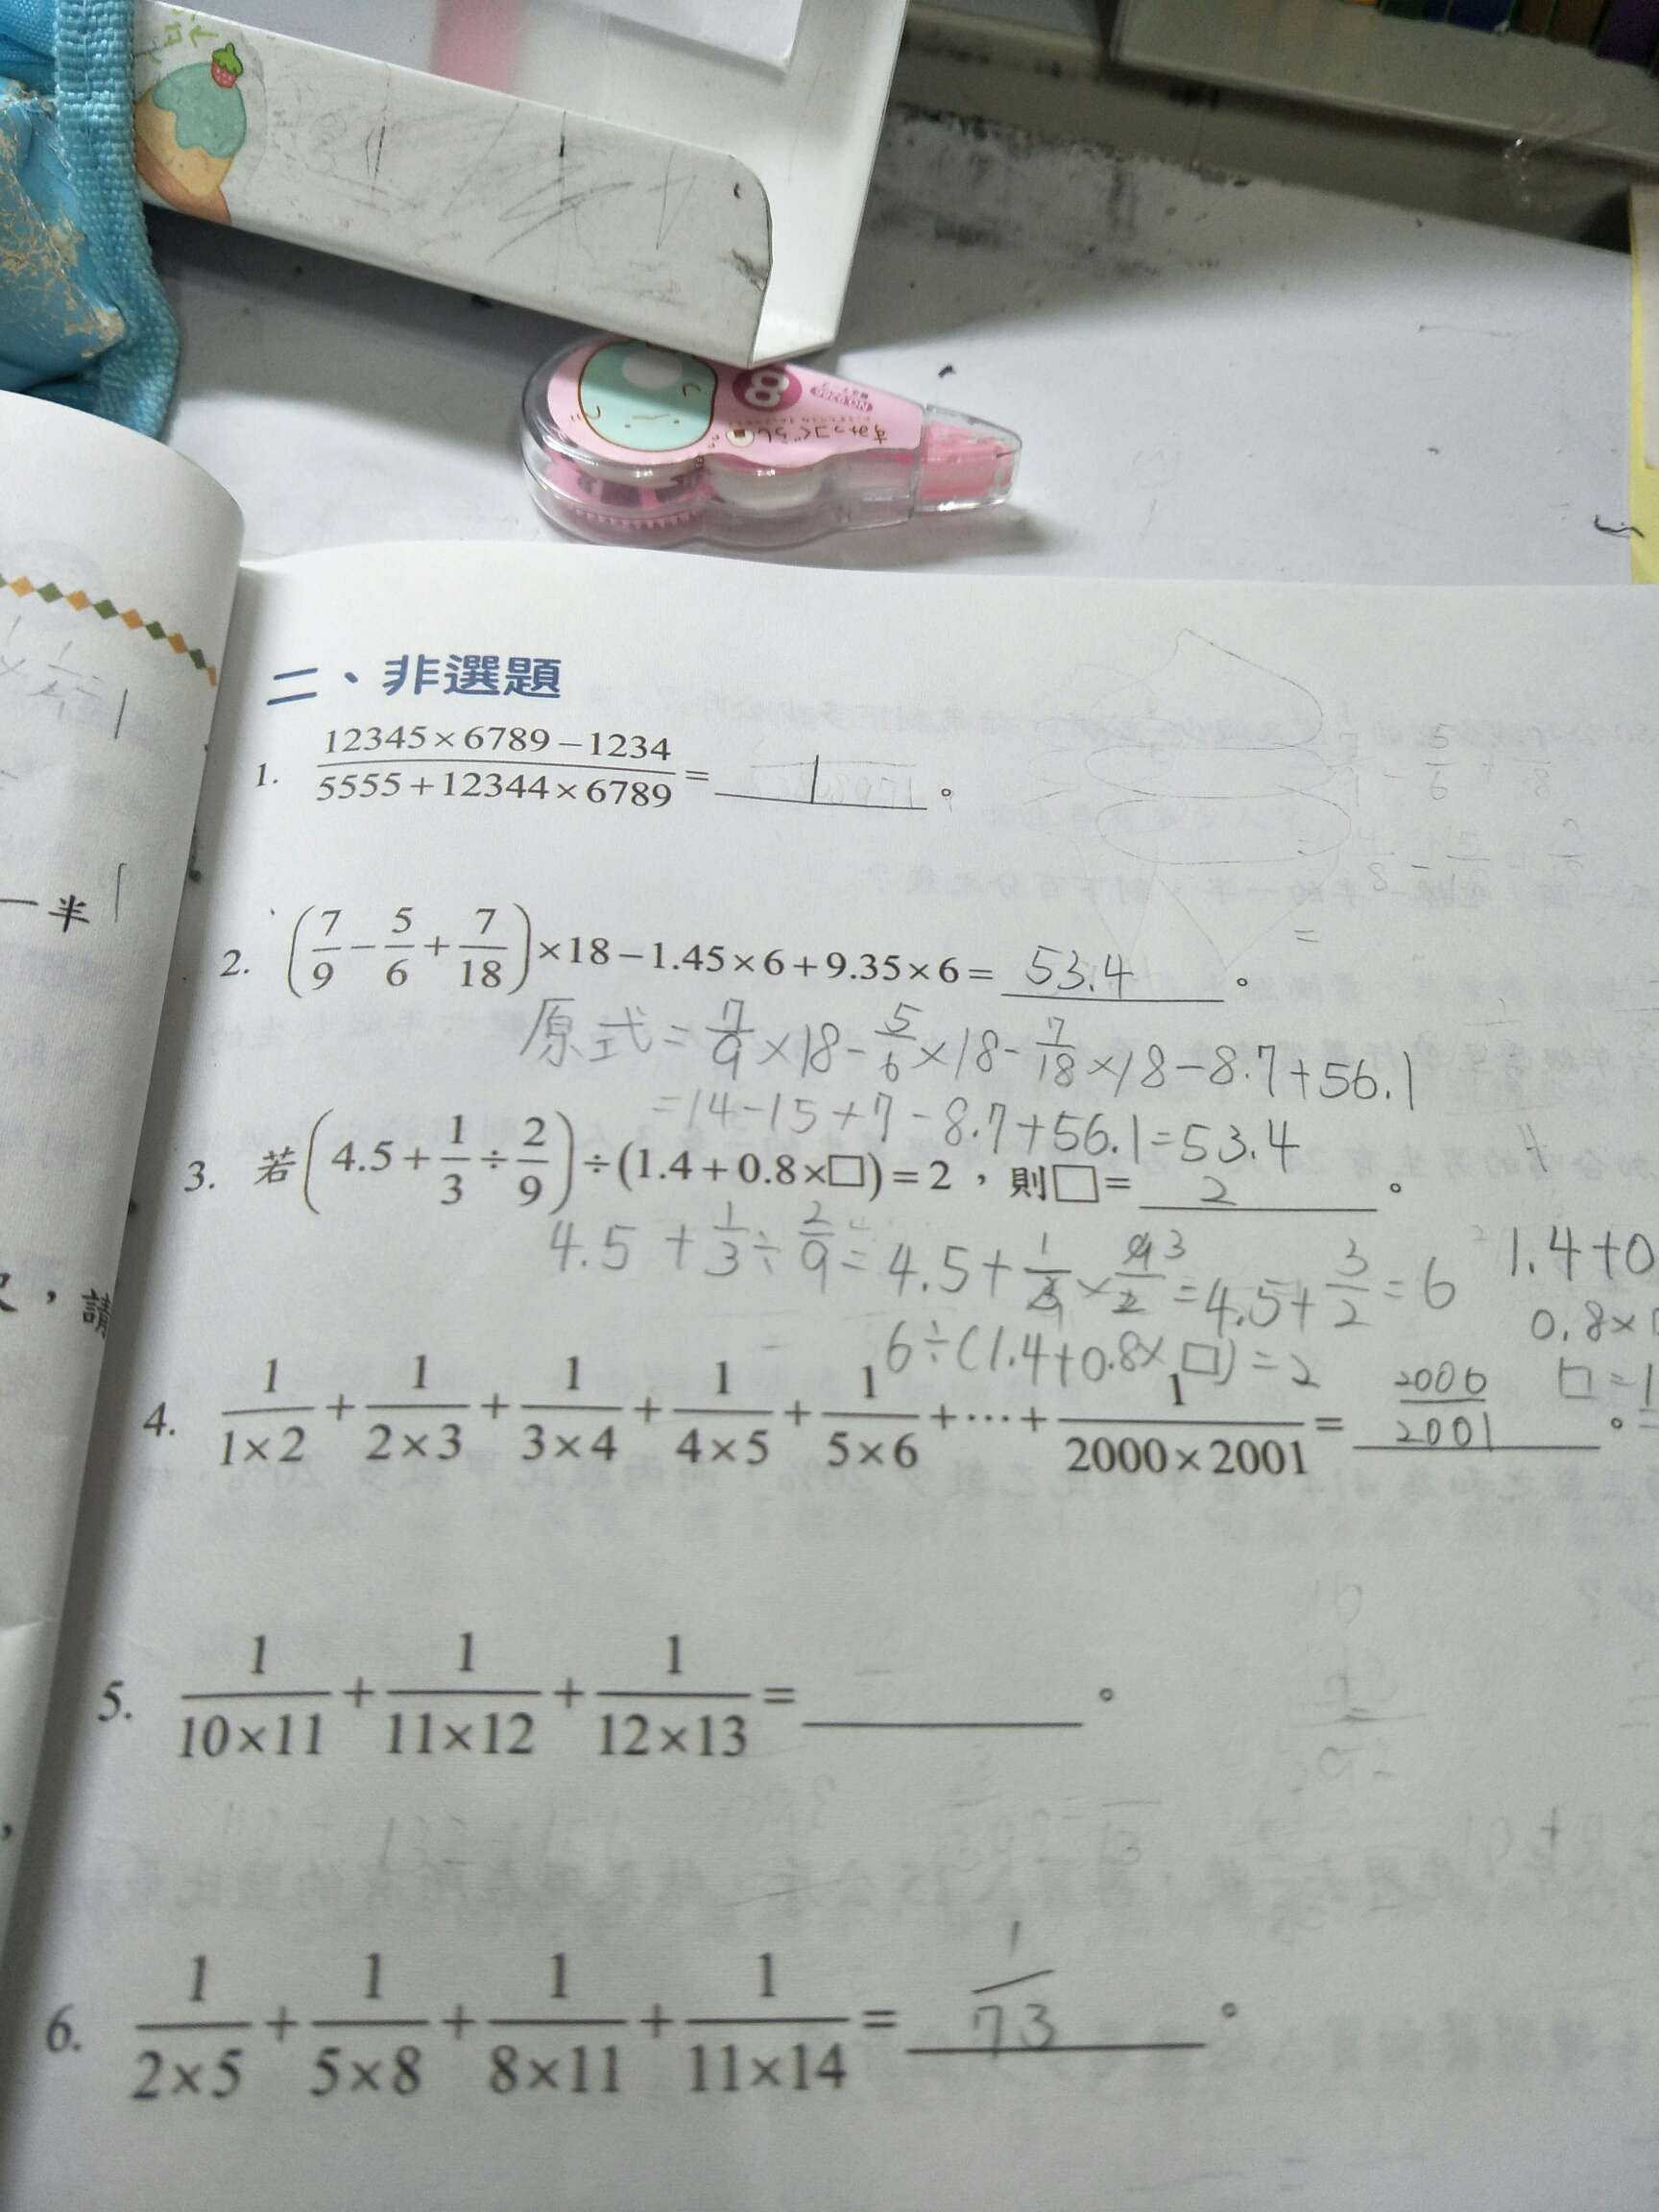 二、非選題
1. (12345×6789－1234)/(5555＋12344×6789)＝ 1 。
一半
2. (7/9－5/6＋7/18)×18－1.45×6＋9.35×6＝ 53.4 。
原式＝7/9×18－5/6×18－7/18×18－8.7＋56.1
＝14－15＋7－8.7＋56.1＝53.4
3. 若(4.5＋1/3÷2/9)÷(1.4＋0.8×□)＝2，則□＝ 2 。
，請
4.5＋1/3÷2/9＝4.5＋1/3×9/2＝4.5＋3/2＝6
1.4＋0
0.8×
6÷(1.4＋0.8×□)＝2
□＝1
4. 1/(1×2)＋1/(2×3)＋1/(3×4)＋1/(4×5)＋1/(5×6)＋…＋1/(2000×2001)＝ 2000/2001 。
5. 1/(10×11)＋1/(11×12)＋1/(12×13)＝ 。
6. 1/(2×5)＋1/(5×8)＋1/(8×11)＋1/(11×14)＝ 1/73 。